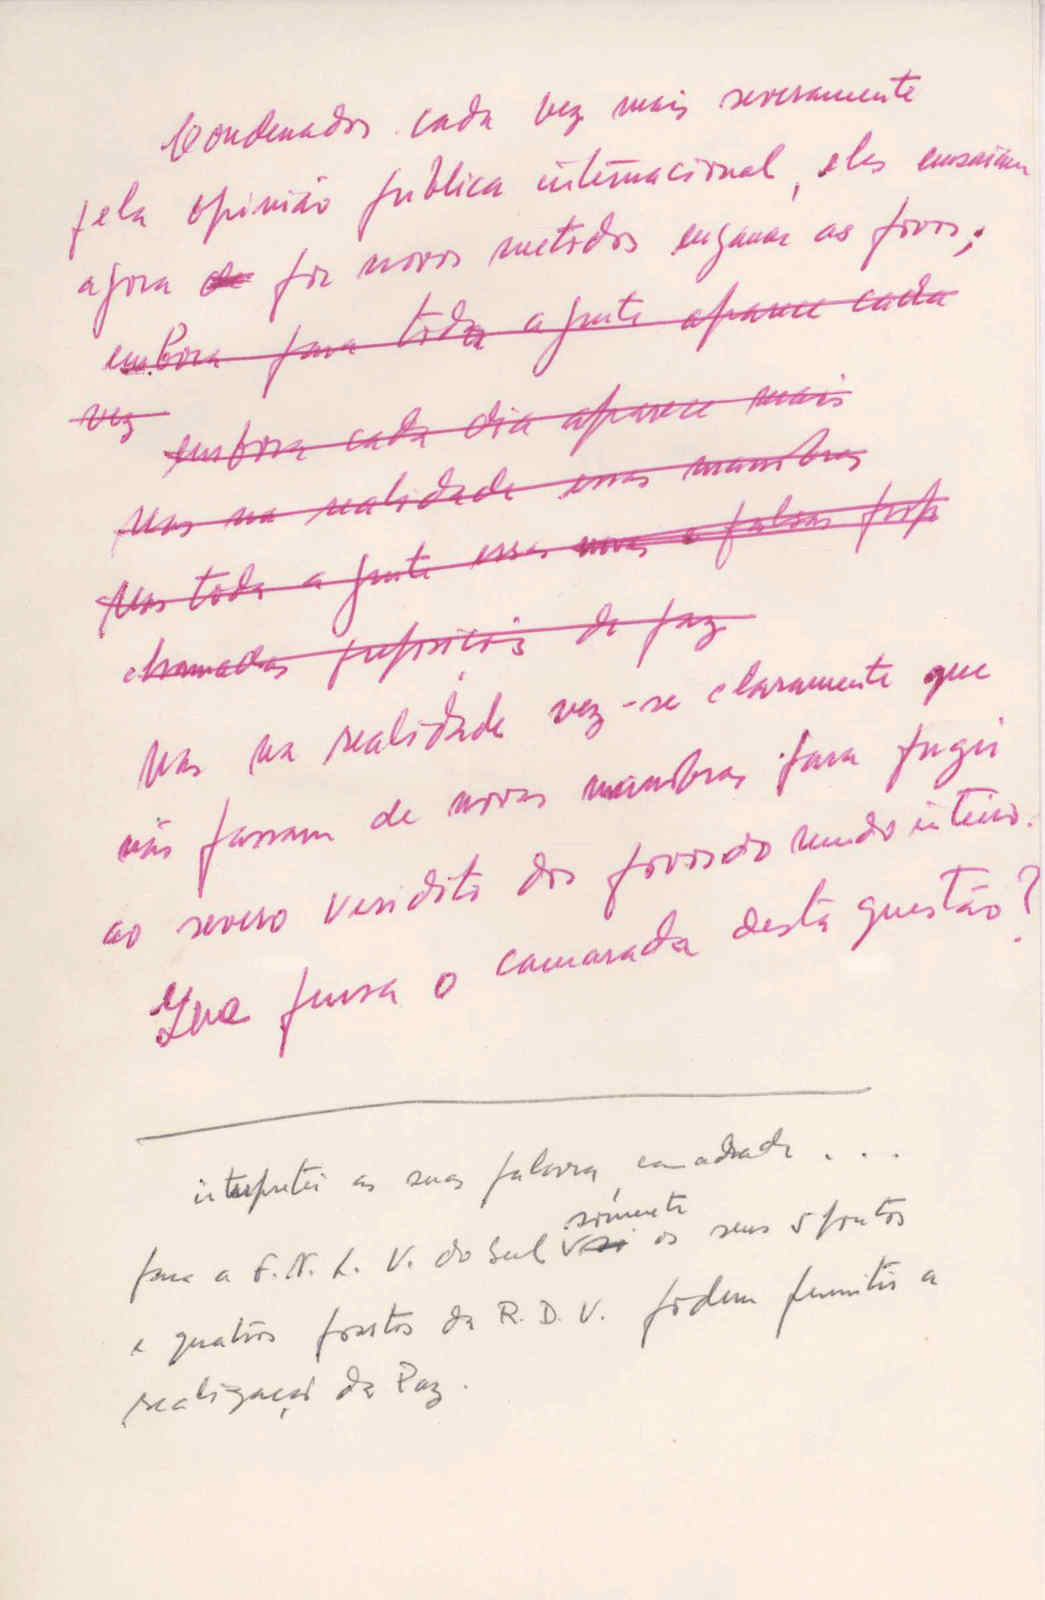 Condenados cada vez mais severamente
pela opinião pública internacional, eles ensaiam
agora por novos metodos enganar os povos;
embora para toda a gente aparece cada
vez
embora cada dia aparece mais
Mas na realidade essas manobras
Mas toda a gente essas novas e falsas prop
chamadas proposições de paz
Mas na realidade vez-se claramente que
não passam de novas manobras para fugir
ao severo veridito dos povos do mundo inteiro.
Que pensa o camarada desta questão?
interpretei as suas palavra, camadrada ...
sómente
para a F. N. L. V. do Sul só os seus 5 pontos
e quatros pontos da R. D. V. podem permitir a
realização da Paz.